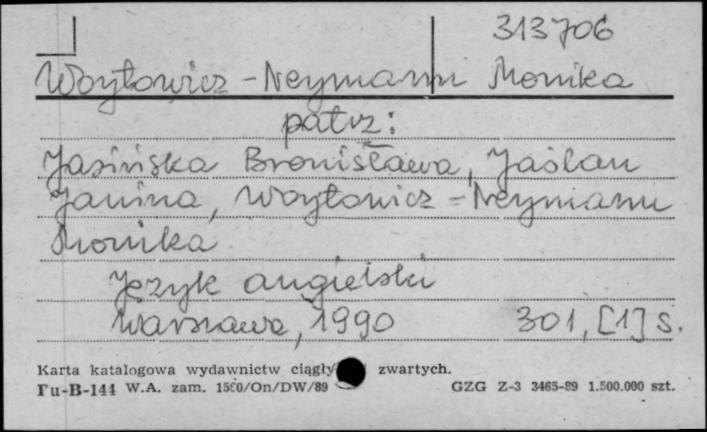 313706
Woytowicz-Neymann Monika
patrz:
Jasińska Bronisława, Jaślan
Janina, Woytowicz-Neymann
Monika
Język angielski
Warszawa, 1990 301, [1] s.
Karta katalogowa wydawnictw ciągły zwartych.
Pu-B-144 W.A. zam. 1500/On/DW/89 GZG Z-3 3465-89 1.500.000 szt.